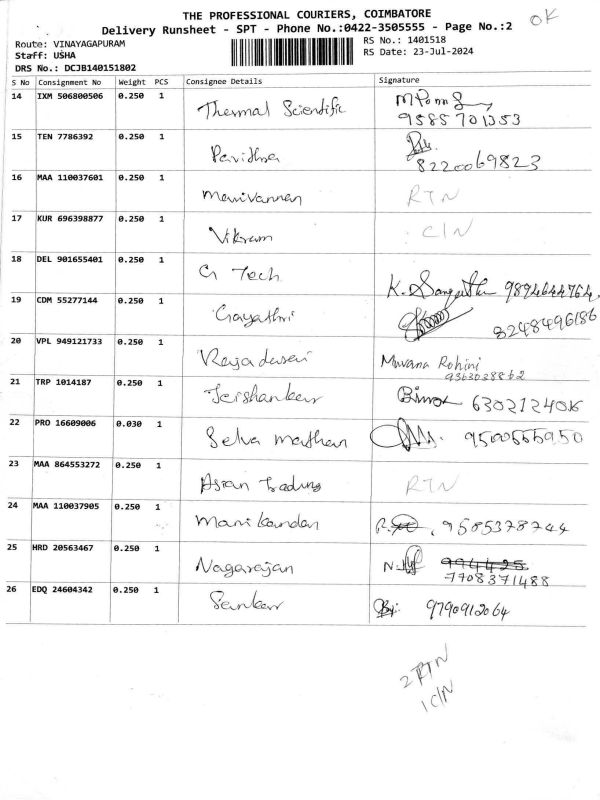 THE PROFESSIONAL COURIERS, COIMBATORE
OK
Delivery Runsheet - SPT - Phone No.:0422-3505555 - Page No.:2
Route: VINAYAGAPURAM
RS No.: 1401518
Staff: USHA
RS Date: 23-Jul-2024
DRS No.: DCJB140151802
S No Consignment No Weight PCS Consignee Details Signature
14 IXM 506800506 0.250 1 Thermal Scientific
9585701353
15 TEN 7786392 0.250 1 Pavithra
8220069823
16 MAA 110037601 0.250 1 Manivannan RTN
17 KUR 696398877 0.250 1 Vikram C/N
18 DEL 901655401 0.250 1 G Tech K. 9894644764,
19 CDM 55277144 0.250 1 Gayathri
8248496186
20 VPL 949121733 0.250 1 Muvana Rohini
9363038862
21 TRP 1014187 0.250 1 6302124016
22 PRO 16609006 0.030 1 Selva Mathan 9500555950
23 MAA 864553272 0.250 1 Asian Trading RTN
24 MAA 110037905 0.250 1 Manikandan 9585378744
25 HRD 20563467 0.250 1 Nagarajan
7708371488
26 EDQ 24604342 0.250 1 9790912064
2 RTN
1 C/N